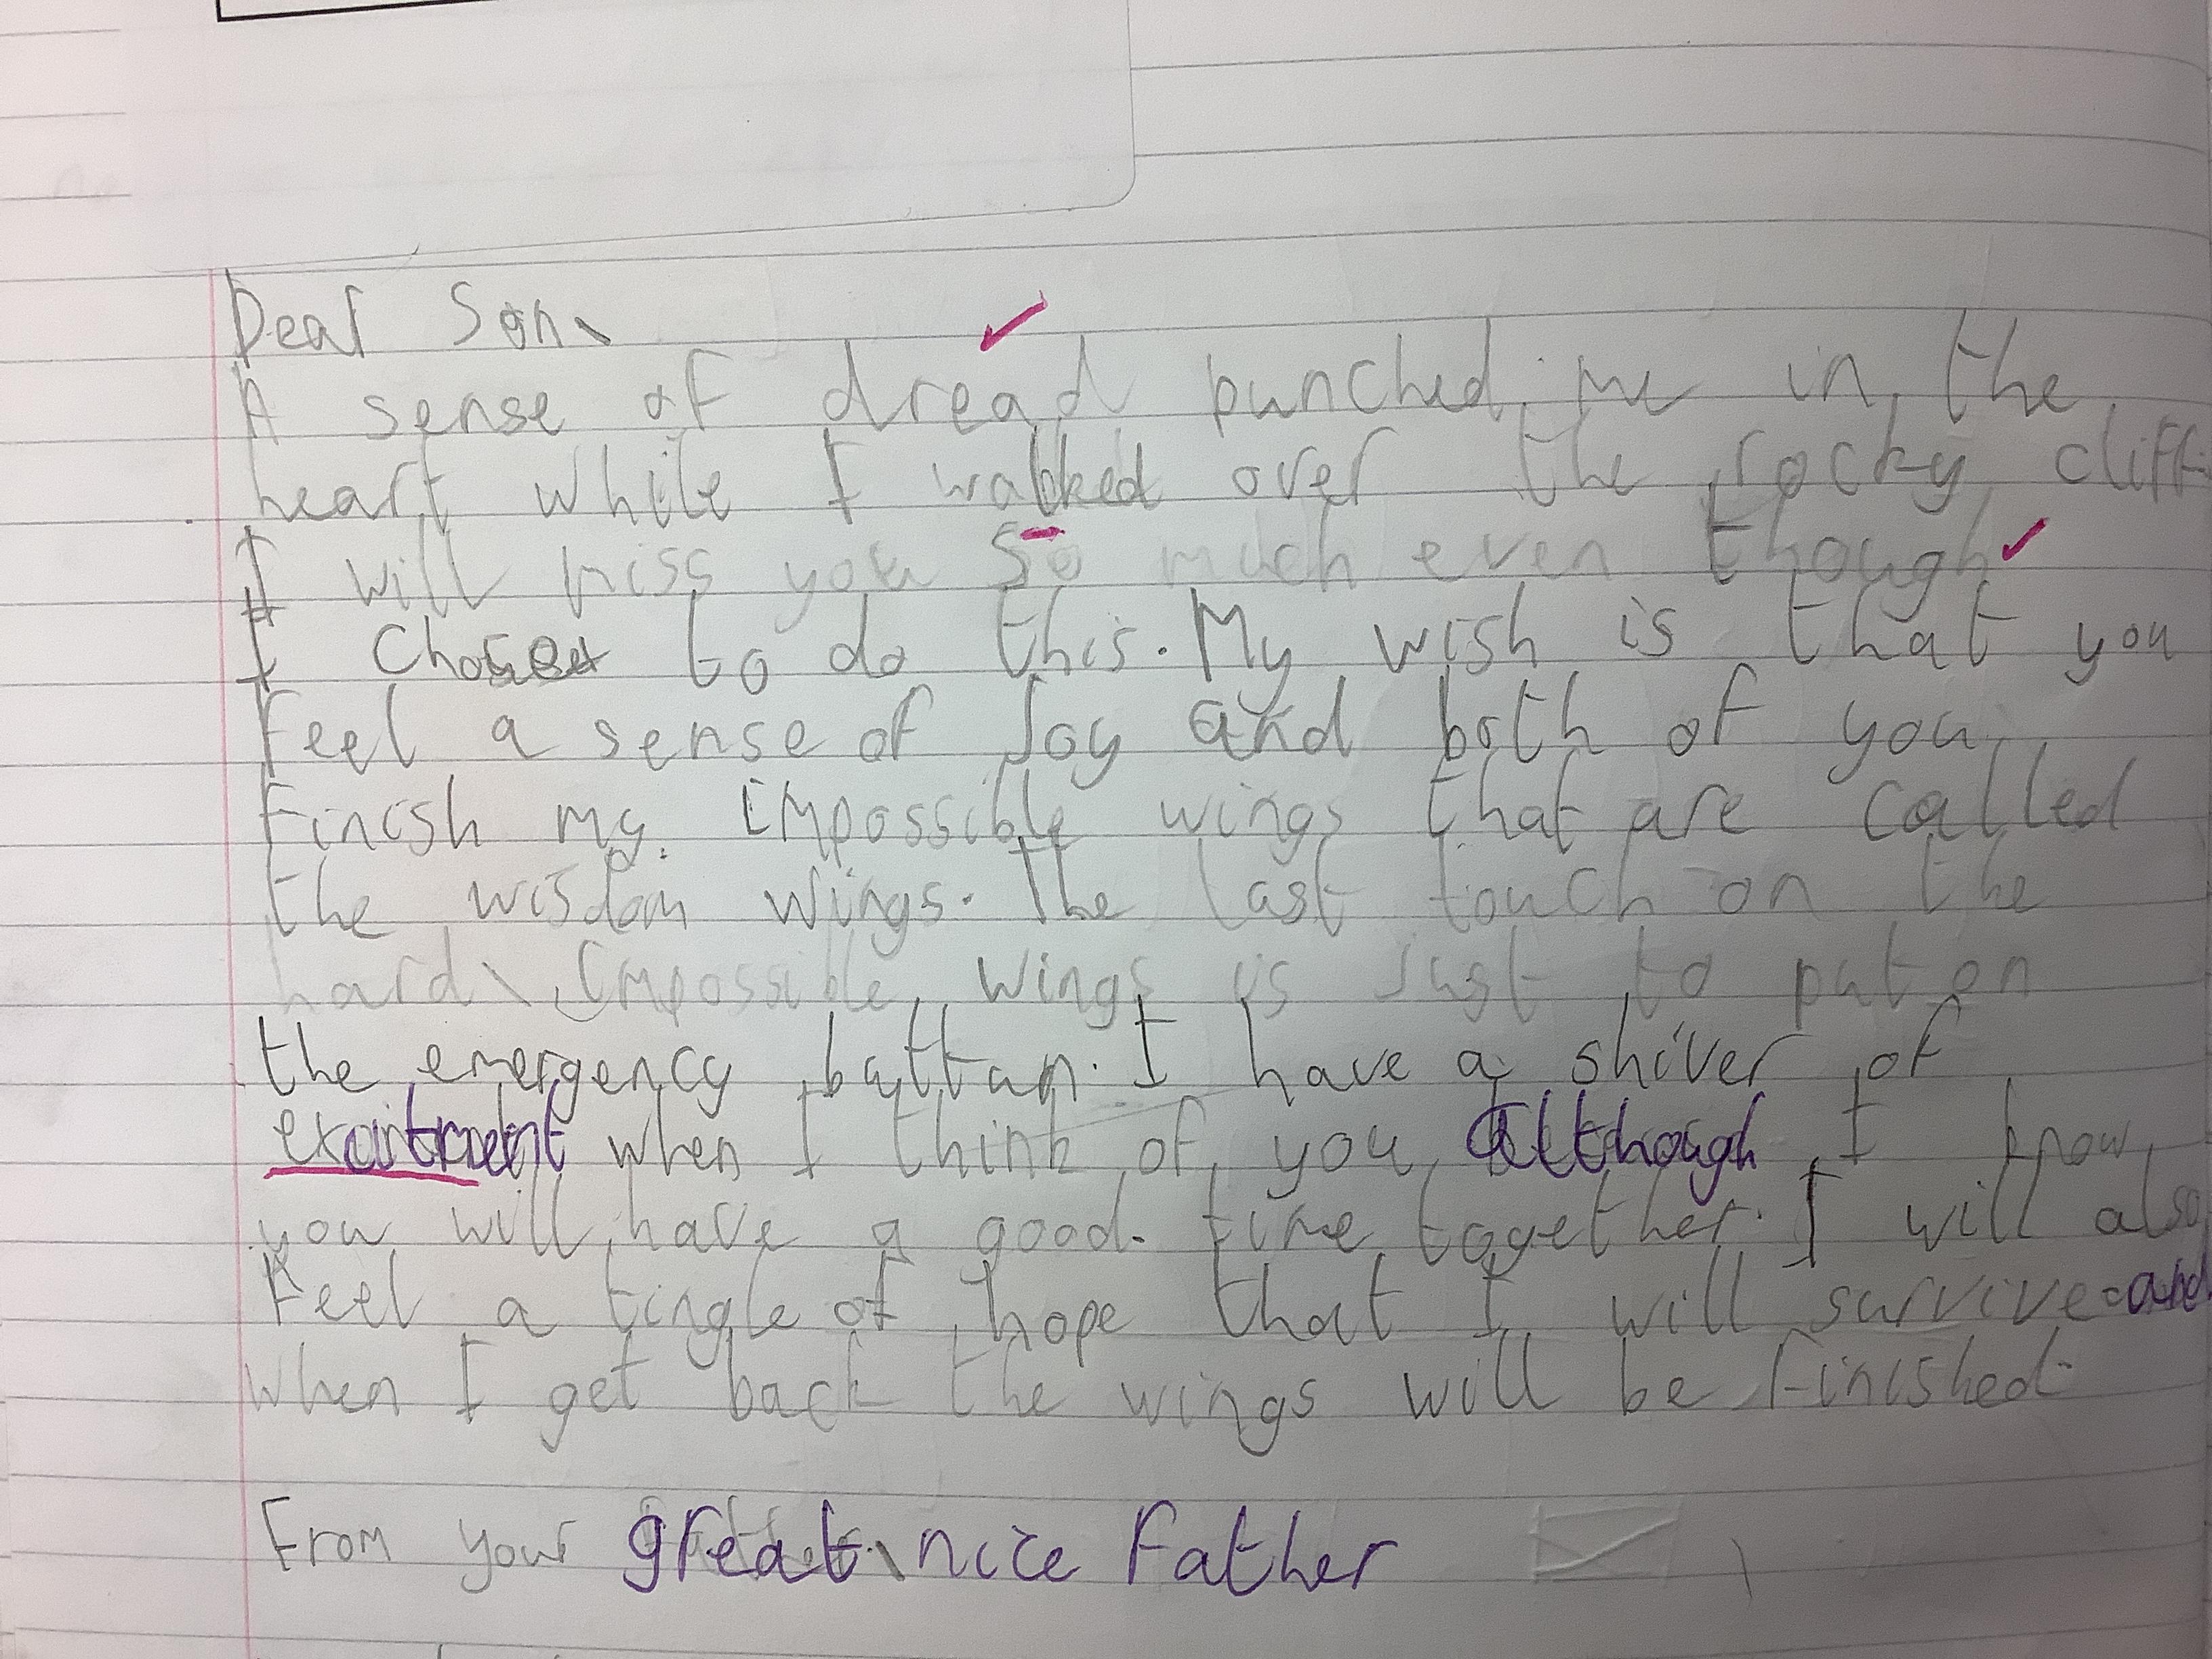 Dear Son,
A sense of dread punched me in the
heart while I walked over the rocky cliff.
I will miss you so much even though
I to do this. My wish is that you
feel a sense of Joy and both of you
Finish my impossible wings that are called
the wisdom wings. The last touch on the
hard, impossible wings is Just to put on
the emergency button. I have a shiver of
when I think of you although I know
you will have a good time together. I will also
feel a tingle of hope that I will survive and
when I get back the wings will be finished.
From your great, nice Father